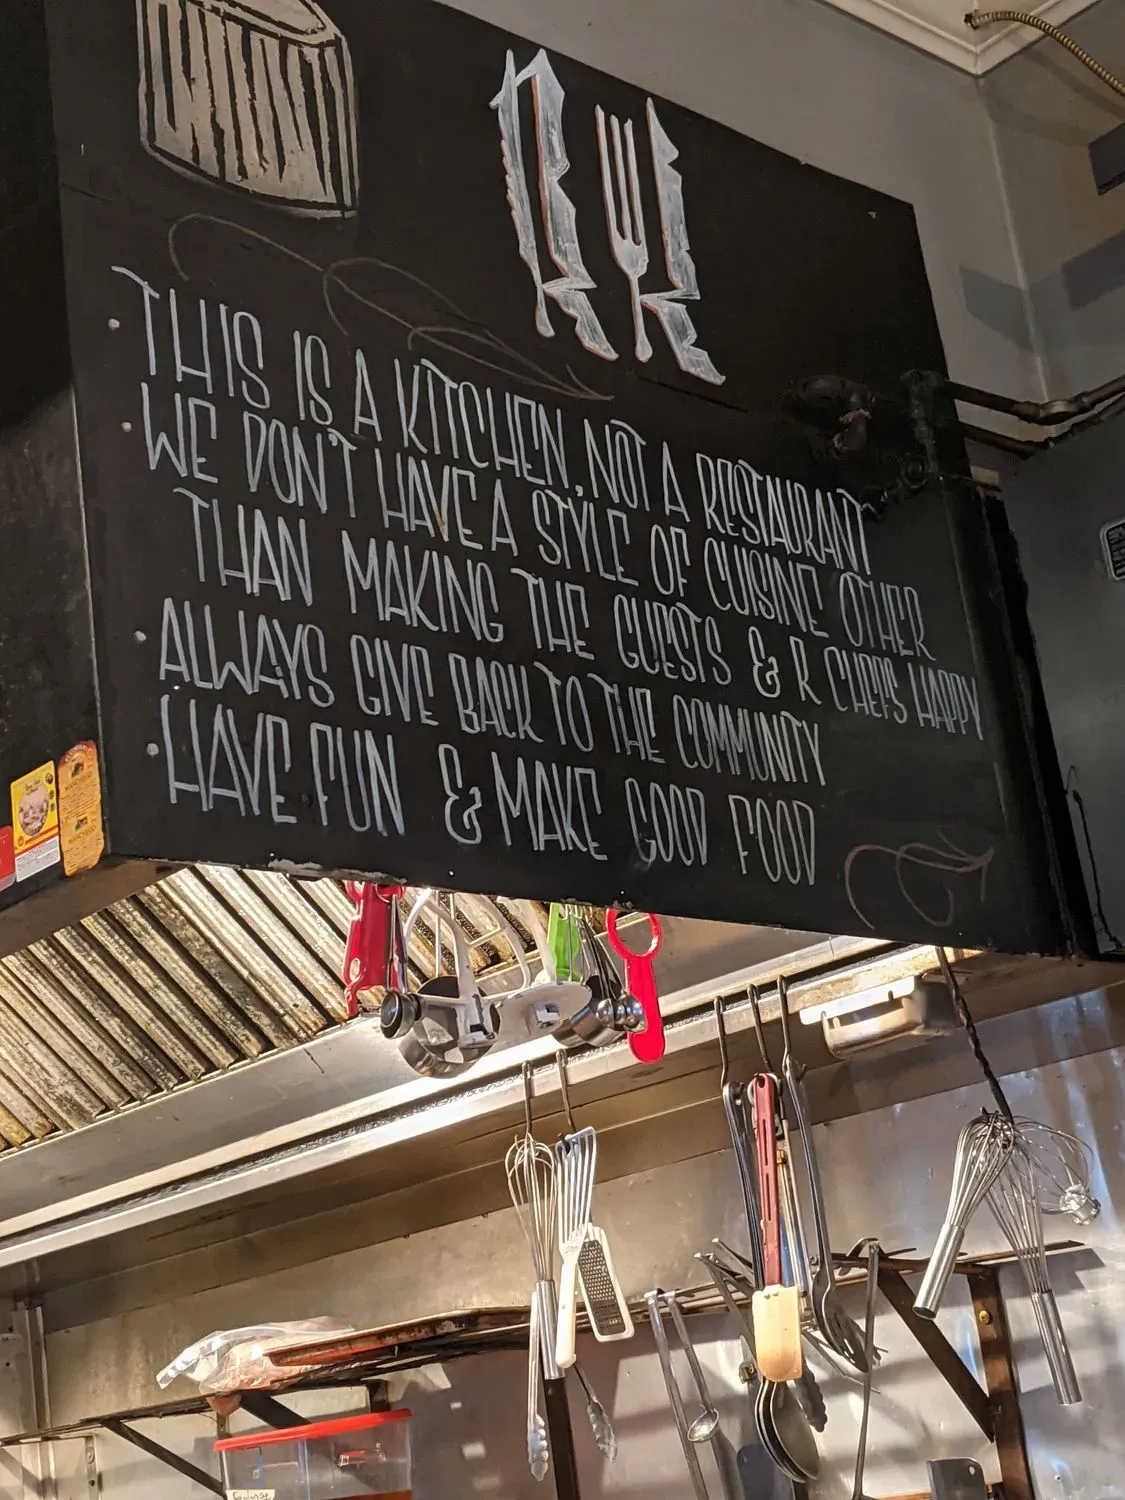 THIS IS A KITCHEN, NOT A RESTAURANT
WE DON'T HAVE A STYLE OF CUISINE OTHER
THAN MAKING THE GUESTS & R CHEFS HAPPY
ALWAYS GIVE BACK TO THE COMMUNITY
HAVE FUN & MAKE GOOD FOOD